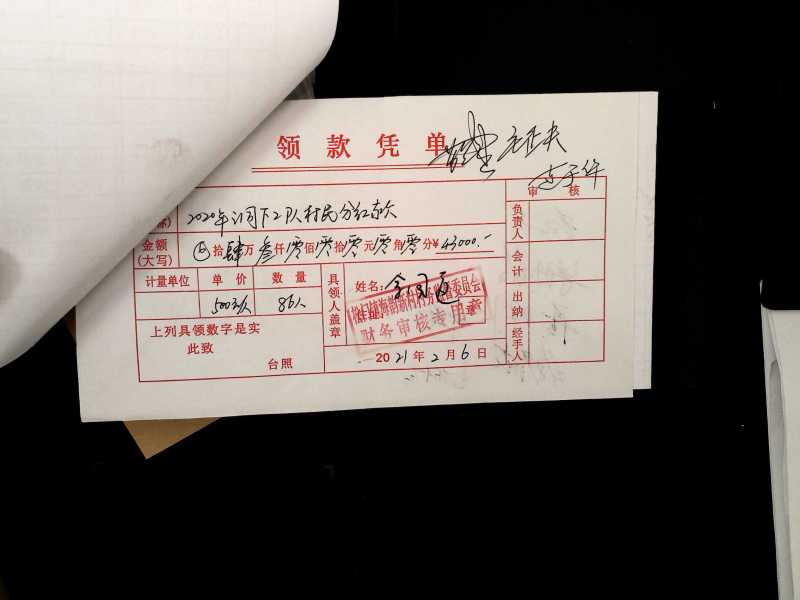 领款凭单
2020年 下2队村民分红款
金额(大写) 拾肆万叁仟零佰零拾零元零角零分¥43000.-
审核
负责人
会计
出纳
经手人
计量单位 单价 数量
500元/人 86人
上列具领数字是实
此致
台照
具领人盖章
姓名:
住址:
财务审核专用章
2021年2月6日